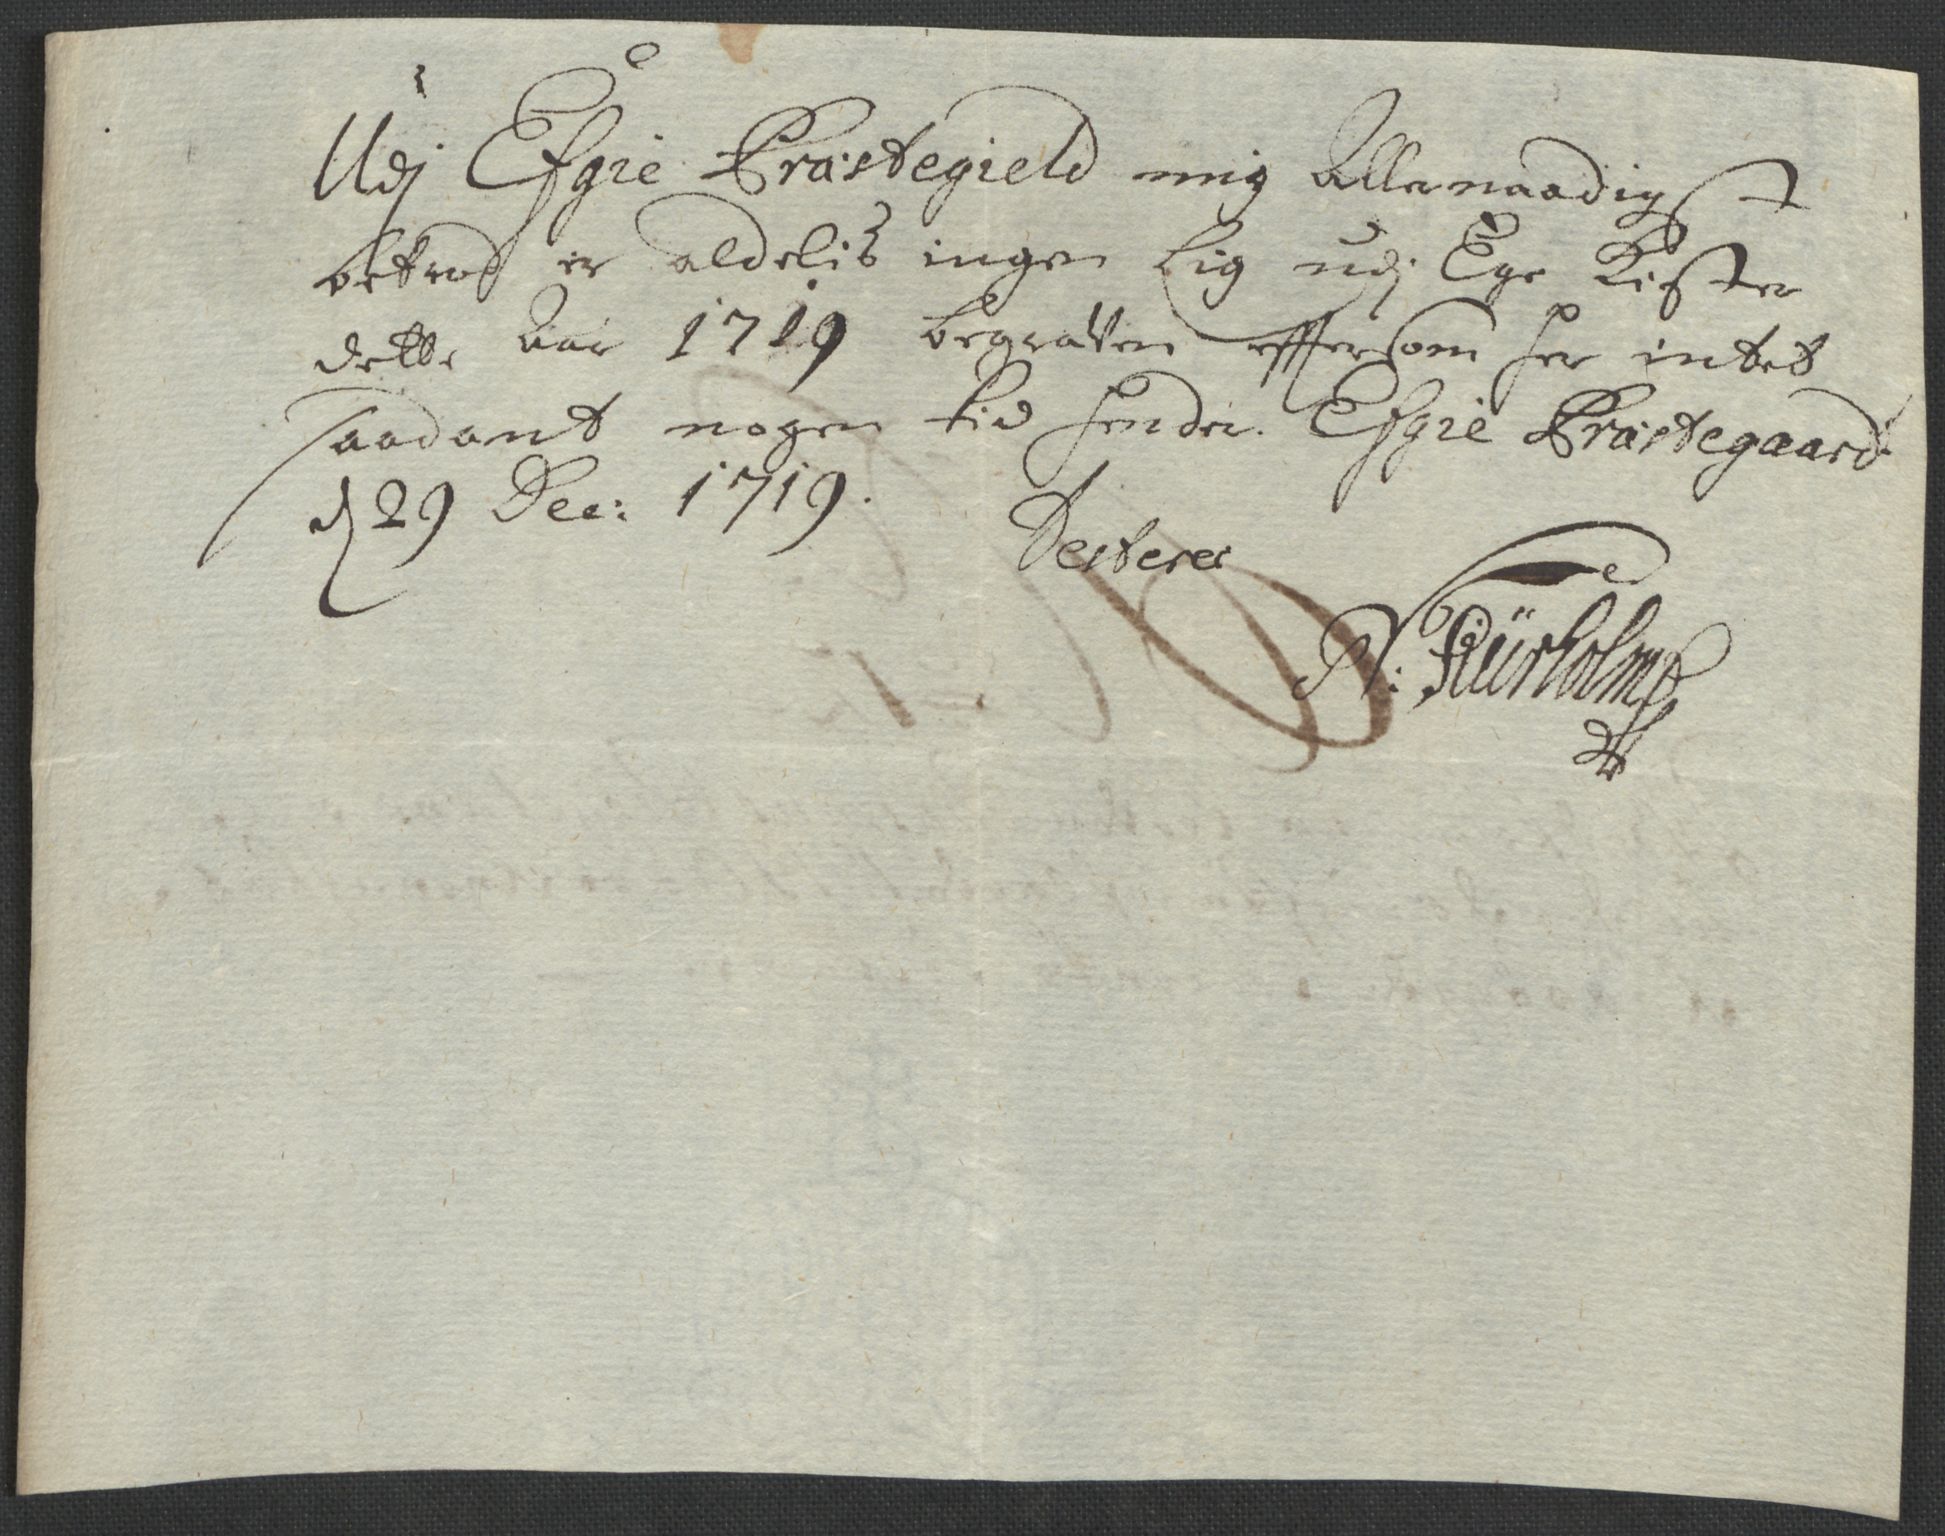 Udj Efgie Præstegield mig Allernaadigst
betroed er aldelis ingen Lig udj Ege Kister
dette Aar 1719 begraven eftersom her intet
saadant nogen tid hender. Efgie Præstegaard
d 29 Dec: 1719.
Testerer
N: